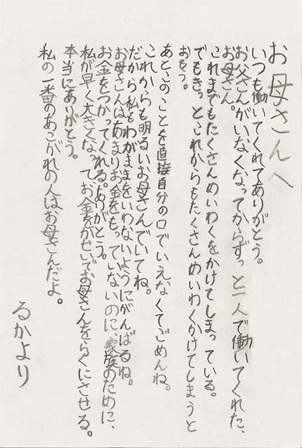 お母さんへ
いつも働いてくれてありがとう。
お父さんがいなくなってからずっと一人で働いてくれた、
お母さん。
これまでもたくさんめいわくをかけてしまっている。
でもきっとこれからもたくさんめいわくかけてしまうと
おもう。
あとこのことを直接自分の口でいえなくてごめんね。
これからも明るいお母さんでいてね。
だから私もわがままをいわないようにがんばるね。
お母さんはあまりお金をもっていないのに、家族のために、
お金をつかってくれる。ありがとう。
私が早く大きくなってお金をかせいでお母さんをらくにさせる。
本当にありがとう。
私の一番のあこがれの人はお母さんだよ。
るかより